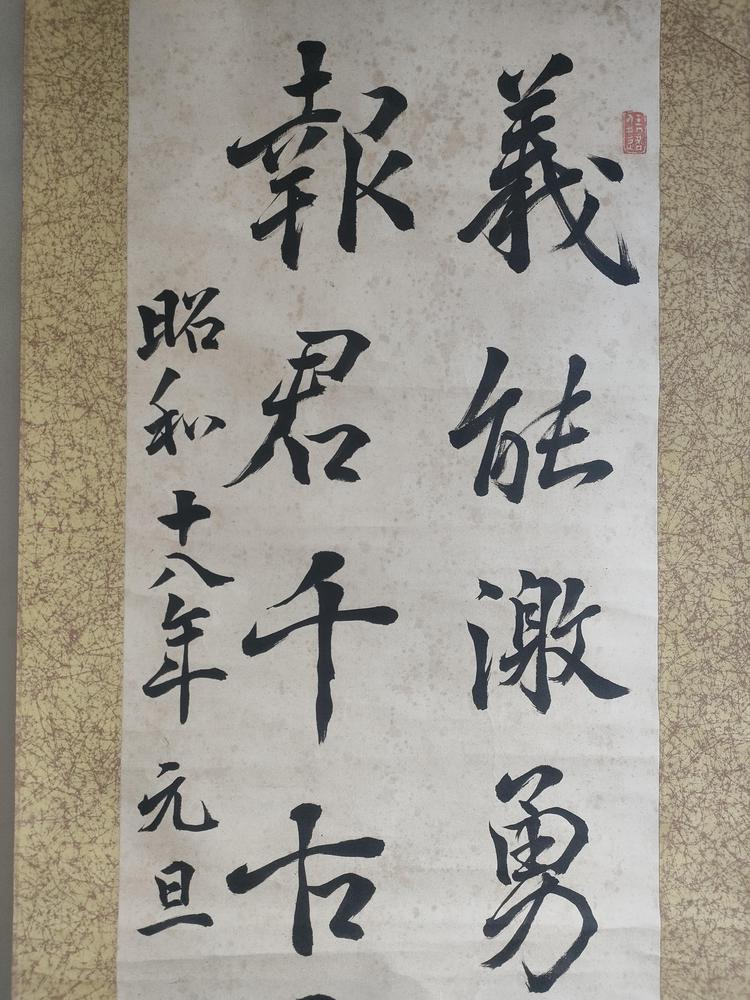 義能激勇
報君千古
昭和十八年元旦